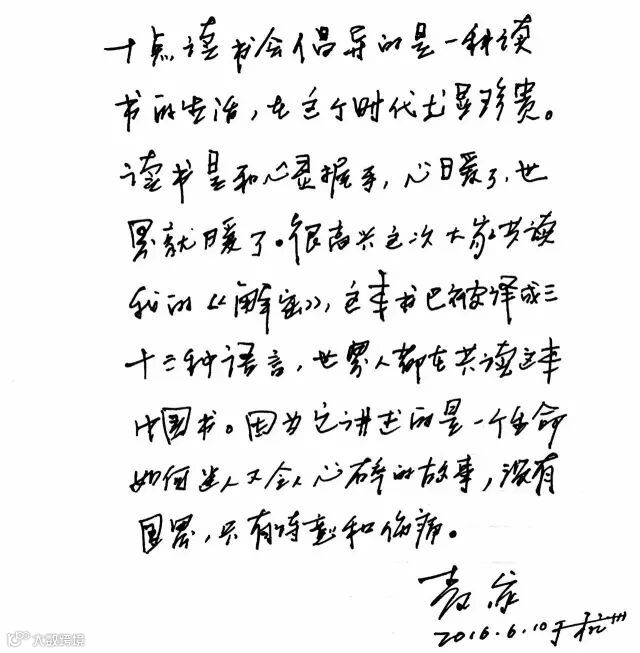 十点读书会倡导的是一种读
书的生活，在这个时代尤显珍贵。
读书是和心灵握手，心暖了，世
界就暖了。很高兴这次大家共读
我的《解密》，这本书已被译成三
十三种语言，世界人都在共读这本
中国书。因为它讲述的是一个生命
如何迷人又令人心碎的故事，没有
国界，只有诗意和伤痛。
麦家
2016.6.10于杭州
大数跨境